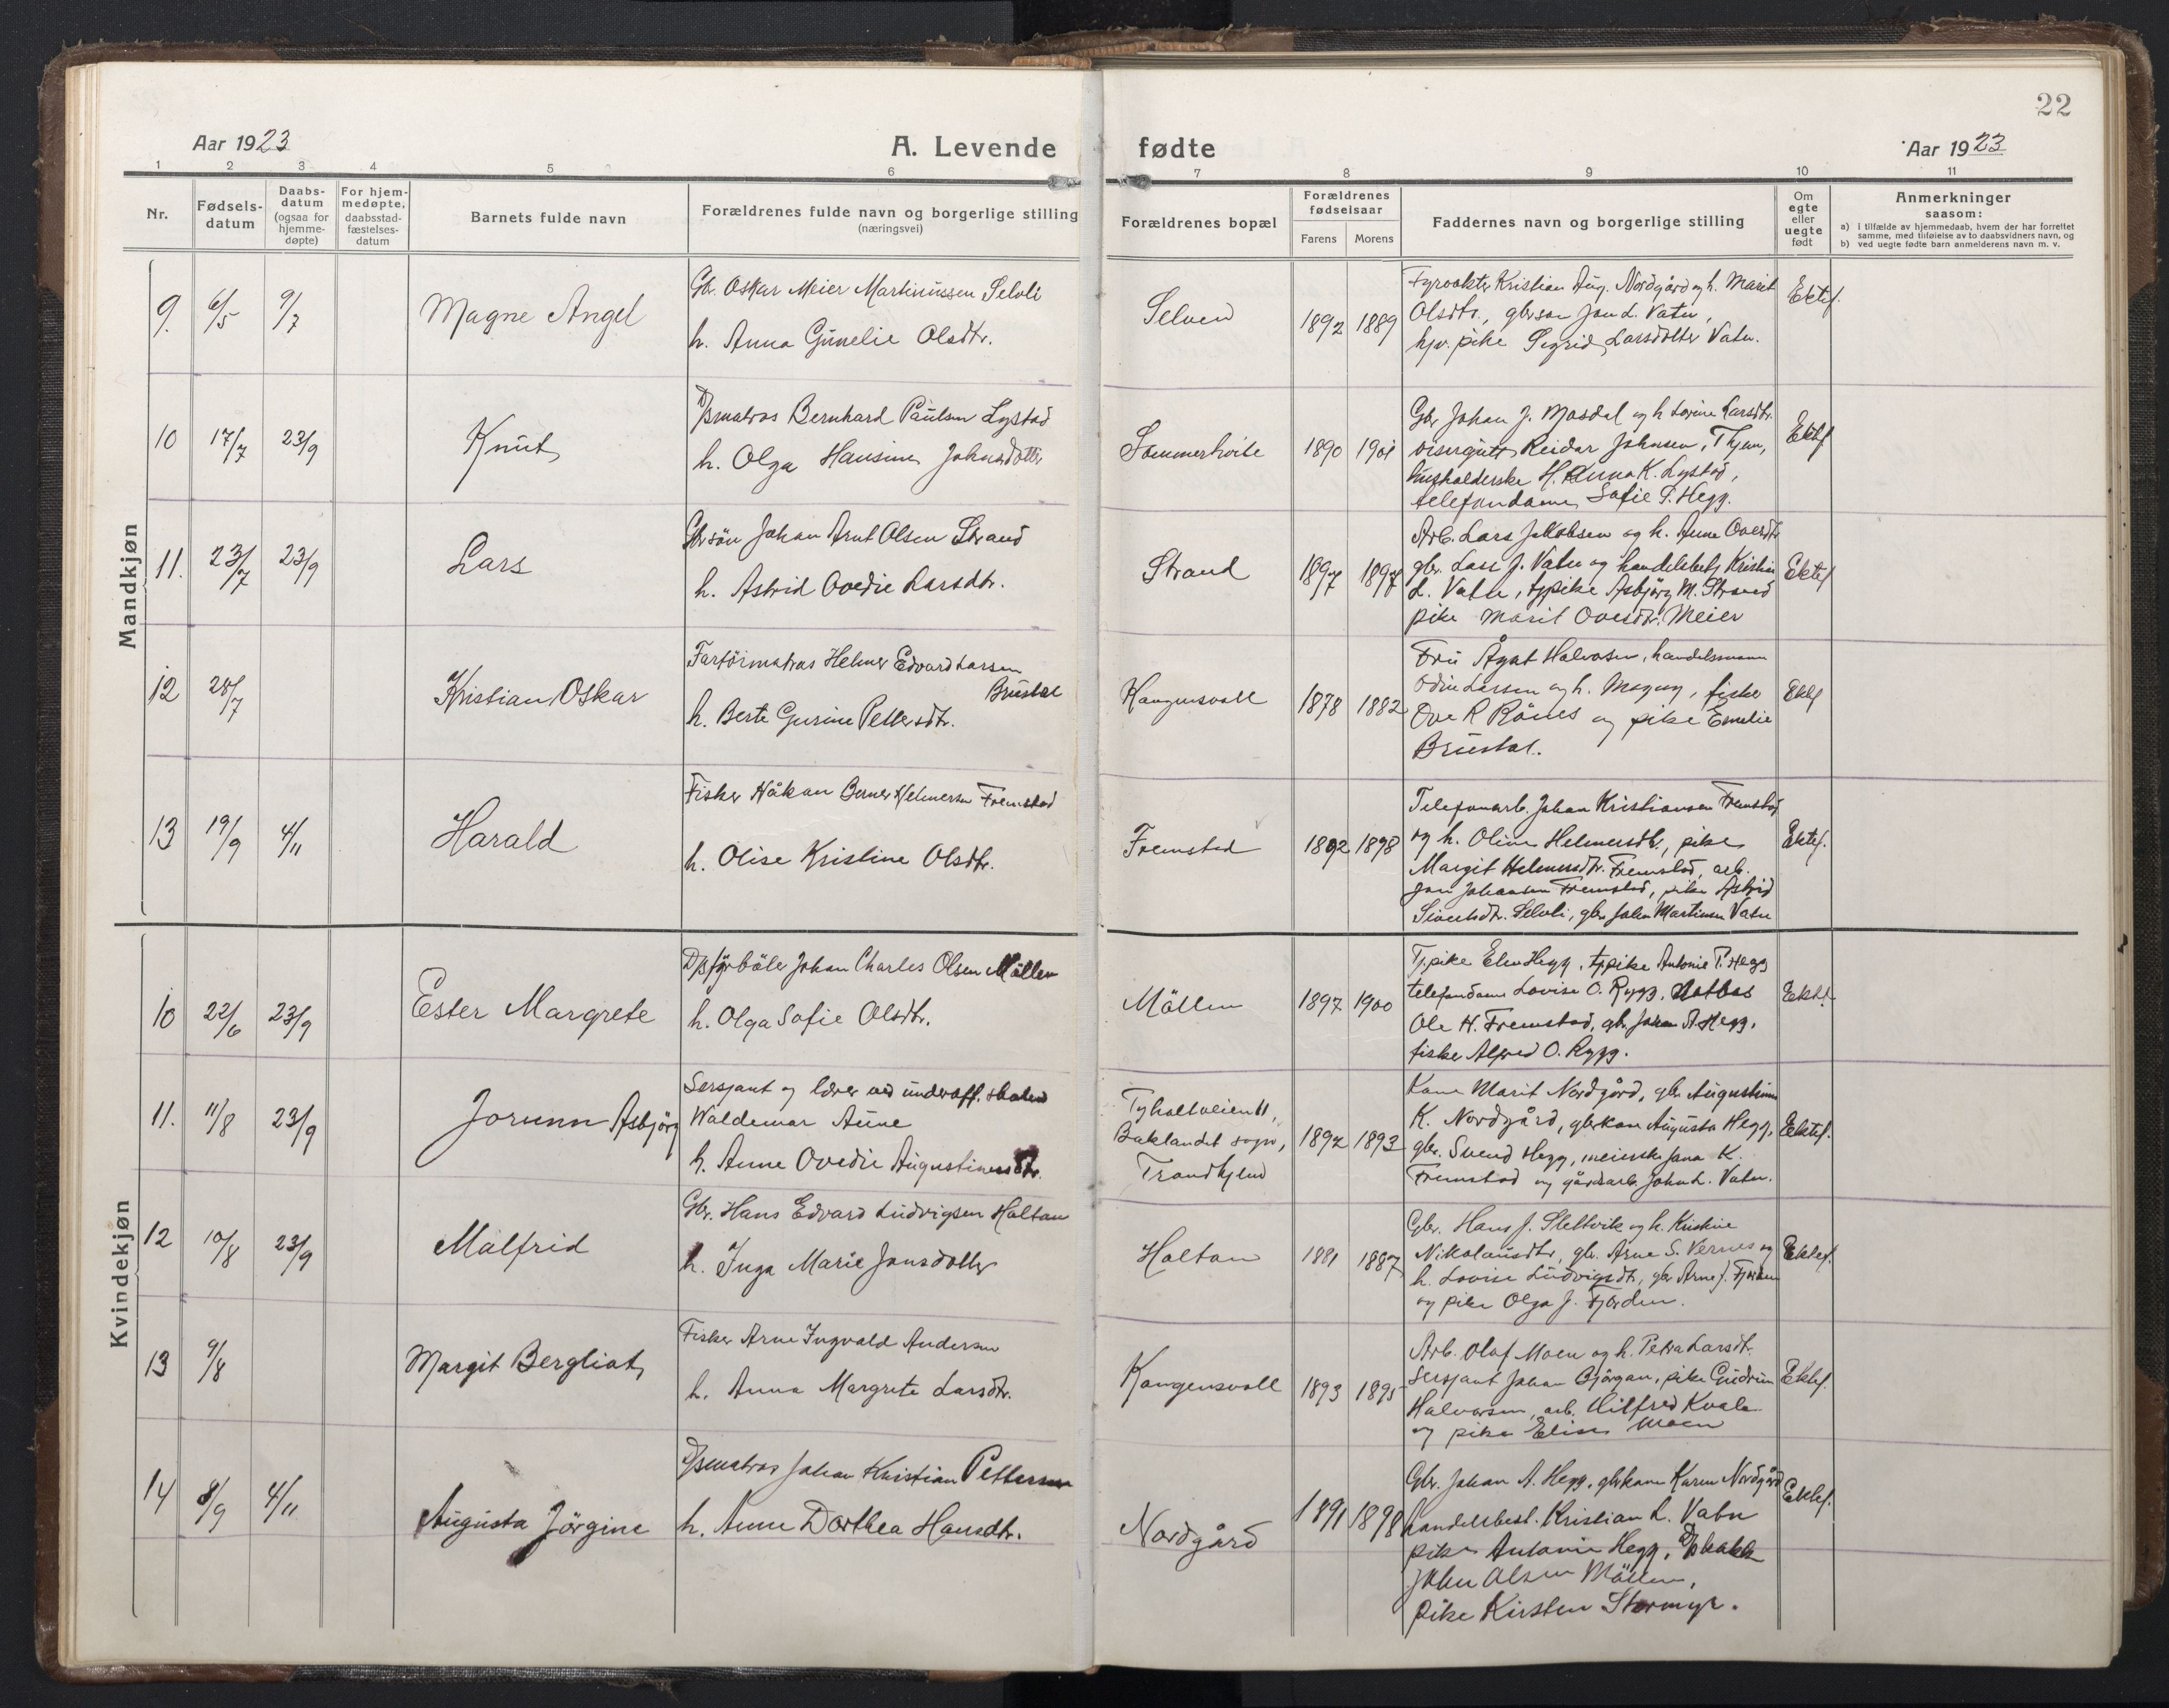 22
Aar 1923
A. Levende fødte
Aar 1923
1 2 3 4 5 6 7 8 9 10 11
Nr.
Fødsels-
datum
Daabs-
datum
(ogsaa for
hjemme-
døpte)
For hjem-
medøpte,
daabsstad-
fæstelses-
datum
Barnets fulde navn
Forældrenes fulde navn og borgerlige stilling
(næringsvei)
Forældrenes bopæl
Forældrenes
fødselsaar
Farens Morens
Faddernes navn og borgerlige stilling
Om
egte
eller
uegte
født
Anmerkninger
saasom:
a) i tilfælde av hjemmedaab, hvem der har forrettet
samme, med tilføielse av to daabsvidners navn, og
b) ved uegte fødte barn anmelderens navn m. v.
Mandkjøn
9. 6/5 9/7 Magne Angel
Gbr. Oskar Meier Martinussen Selvli
h. Anna Gunelie Olsdtr.
Selven 1892 1889
Fyrvokter Kristian Aug. Nordgård og h. Marit
Olsdtr., gbrsøn Jon L. Vatn,
hjv. pike Sigrid Larsdotter Vatn.
Ektef.
10 17/7 23/9 Knut
D/smatros Bernhard Paulsen Lystad
h. Olga Hansine Johnsdotter
Sommerhvile 1890 1901
Gbr Johan J. Mosdal og h Lovine Larsdtr.
visergutt Reidar Johnsen, Thjem,
husholderske H. Anna K. Lystad,
telefondame Sofie P. Hegg.
Ektef
11. 23/7 23/9 Lars
Gbrsøn Johan Arnt Olsen Strand
h. Astrid Ovedie Larsdtr.
Strand 1897 1897
Arb. Lars Jakobsen og h. Anne Ovesdtr
gbr. Lars J. Vatn og handelsbetj Kristian
L. Vatn, tjpike Asbjørg M. Strand
pike Marit Ovesdtr. Meier
Ektef
12 28/7 Kristian Oskar
Fartöimatros Helmer Edvard Larssen
Brustad
h. Berte Gurine Pettersdtr.
Kongensvoll 1878 1882
Fru Ågat Halvorsen, handelsmann
Odin Larsen og h. Magny, fisker
Ove R Rönes og pike Emelie
Brustad.
Ektf
13 19/9 4/11 Harald
Fisker Håkon Berner Helmersen Fremstad
h. Olise Kristine Olsdtr.
Fremstad 1892 1898
Telefonarb. Johan Kristiansen Fremstad
og h. Oline Helmersdtr., pike
Margit Helmersdtr. Fremstad, arb.
Jon Johansen Fremstad, pike Astrid
Sivertsdtr. Selvli, gbr John Martinsen Vatn
Ektef.
Kvindekjøn
10 22/6 23/9 Ester Margrete
D/s fyrböter Johan Charles Olsen Möllen
h. Olga Sofie Olsdtr.
Möllen 1897 1900
Tj.pike Elen Hegg, tjpike Antonie P. Hegg
telefondame Lovise O. Rygg,
Ole H. Fremstad, gbr. Johan A. Hegg,
fisker Alfred O. Rygg.
Ektef.
11. 11/8 23/9 Jorunn Asbjörg
Sersjant og lærer ved underoff. skolen
Waldemar Aune
h. Anne Ovedie Augustinusdtr.
Tyholtveien 11,
Baklandet sogn,
Trondhjem
1892 1893
Kone Marit Nordgård, gbr. Augustinus
K. Nordgård, gbrkone Augusta Hegg,
gbr. Svend Hegg, meierske Jona K.
Fremstad og gårdsarb. John L. Vatn.
Ektef.
12 10/8 23/9 Målfrid
Gbr. Hans Edvard Ludvigsen Holtan
h. Inga Marie Jonsdotter
Holtan 1881 1887
Gbr. Hans J. Slettvik og h. Kristine
Nikolausdtr, gbr. Arne S. Vernes og
h. Lovise Ludvigsdtr, gbr Arne J. Fjorden
og pike Olga J. Fjorden.
Ektef.
13 9/8 Margit Bergliot
Fisker Arne Ingvald Andersen
h. Anna Margrete Larsdtr.
Kongensvoll 1893 1895
Arb. Olaf Moen og h. Petra Larsdtr.
Sersjant Johan Bjørgan, pike Gudrun
Halvorsen, arb. Hilfred Kvale
og pike Elise Moen
Ektef.
14 8/9 4/11 Augusta Jörgine
D/smatros Johan Kristian Pettersen
h. Anne Dorthea Hansdtr.
Nordgård 1891 1898
Gbr. Johan A. Hegg, gbrkone Karen Nordgård
handelsbest. Kristian L. Vatn
pike Antonie Hegg,
John Olsen Möllen,
pike Kirsten Stormyr.
Ektef.